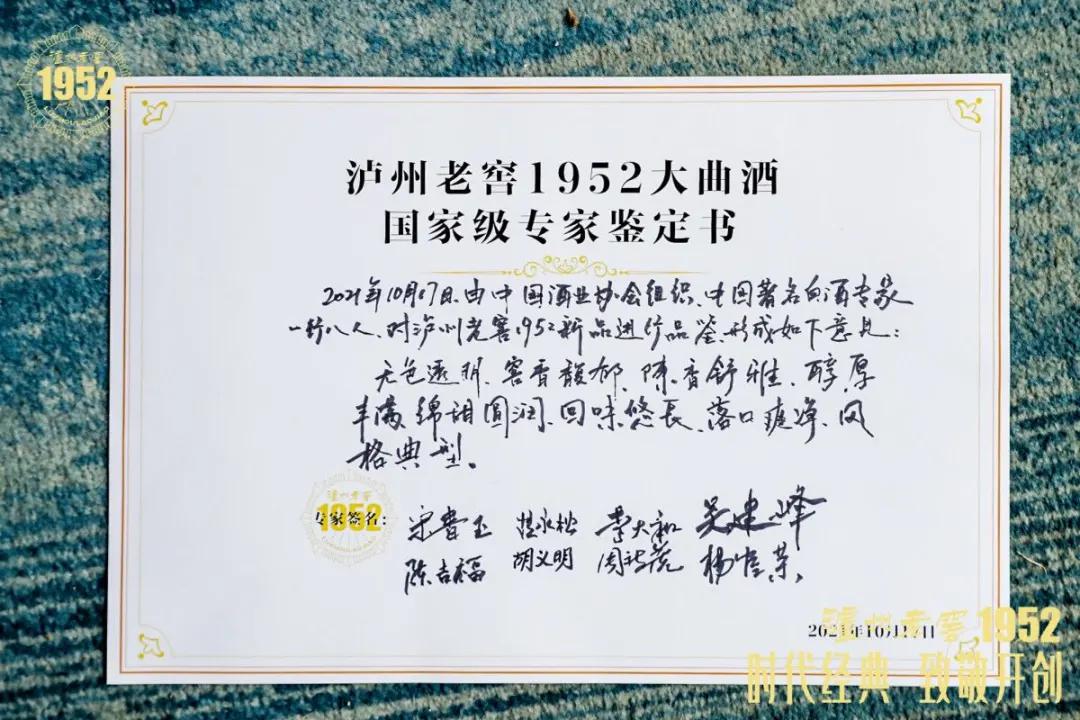 泸州老窖
1952
泸州老窖1952大曲酒
国家级专家鉴定书
2021年10月17日,由中国酒业协会组织、中国著名白酒专家
一行八人,对泸州老窖1952新品进行品鉴,形成如下意见:
无色透明、窖香馥郁、陈香舒雅、醇厚
丰满、绵甜圆润、回味悠长、落口爽净、风
格典型。
泸州老窖
1952
专家签名:
李大和 吴建峰
陈吉福 胡义明 杨官荣
2021年10月17日
泸州老窖1952
时代经典 致敬开创